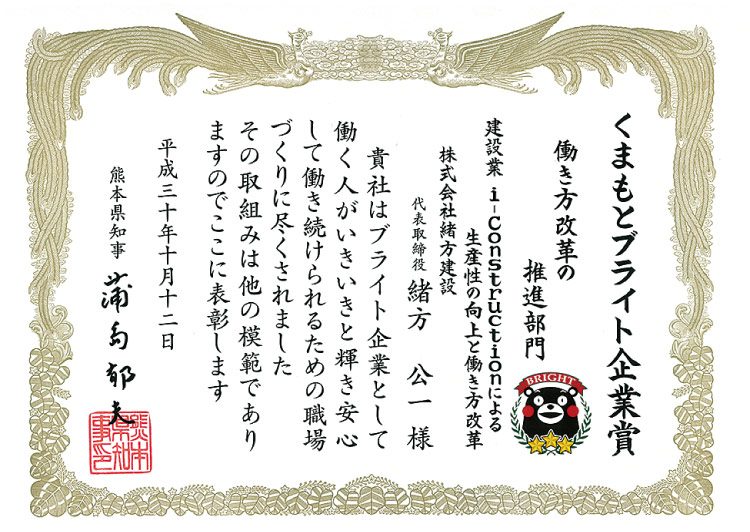 くまもとブライト企業賞
働き方改革の
推進部門
BRIGHT
建設業 i-Constructionによる
生産性の向上と働き方改革
株式会社緒方建設
代表取締役 緒方 公一 様
貴社はブライト企業として
働く人がいきいきと輝き安心
して働き続けられるための職場
づくりに尽くされました
その取組みは他の模範であり
ますのでここに表彰します
平成三十年十月十二日
熊本県知事 蒲島郁夫
熊本県知事印